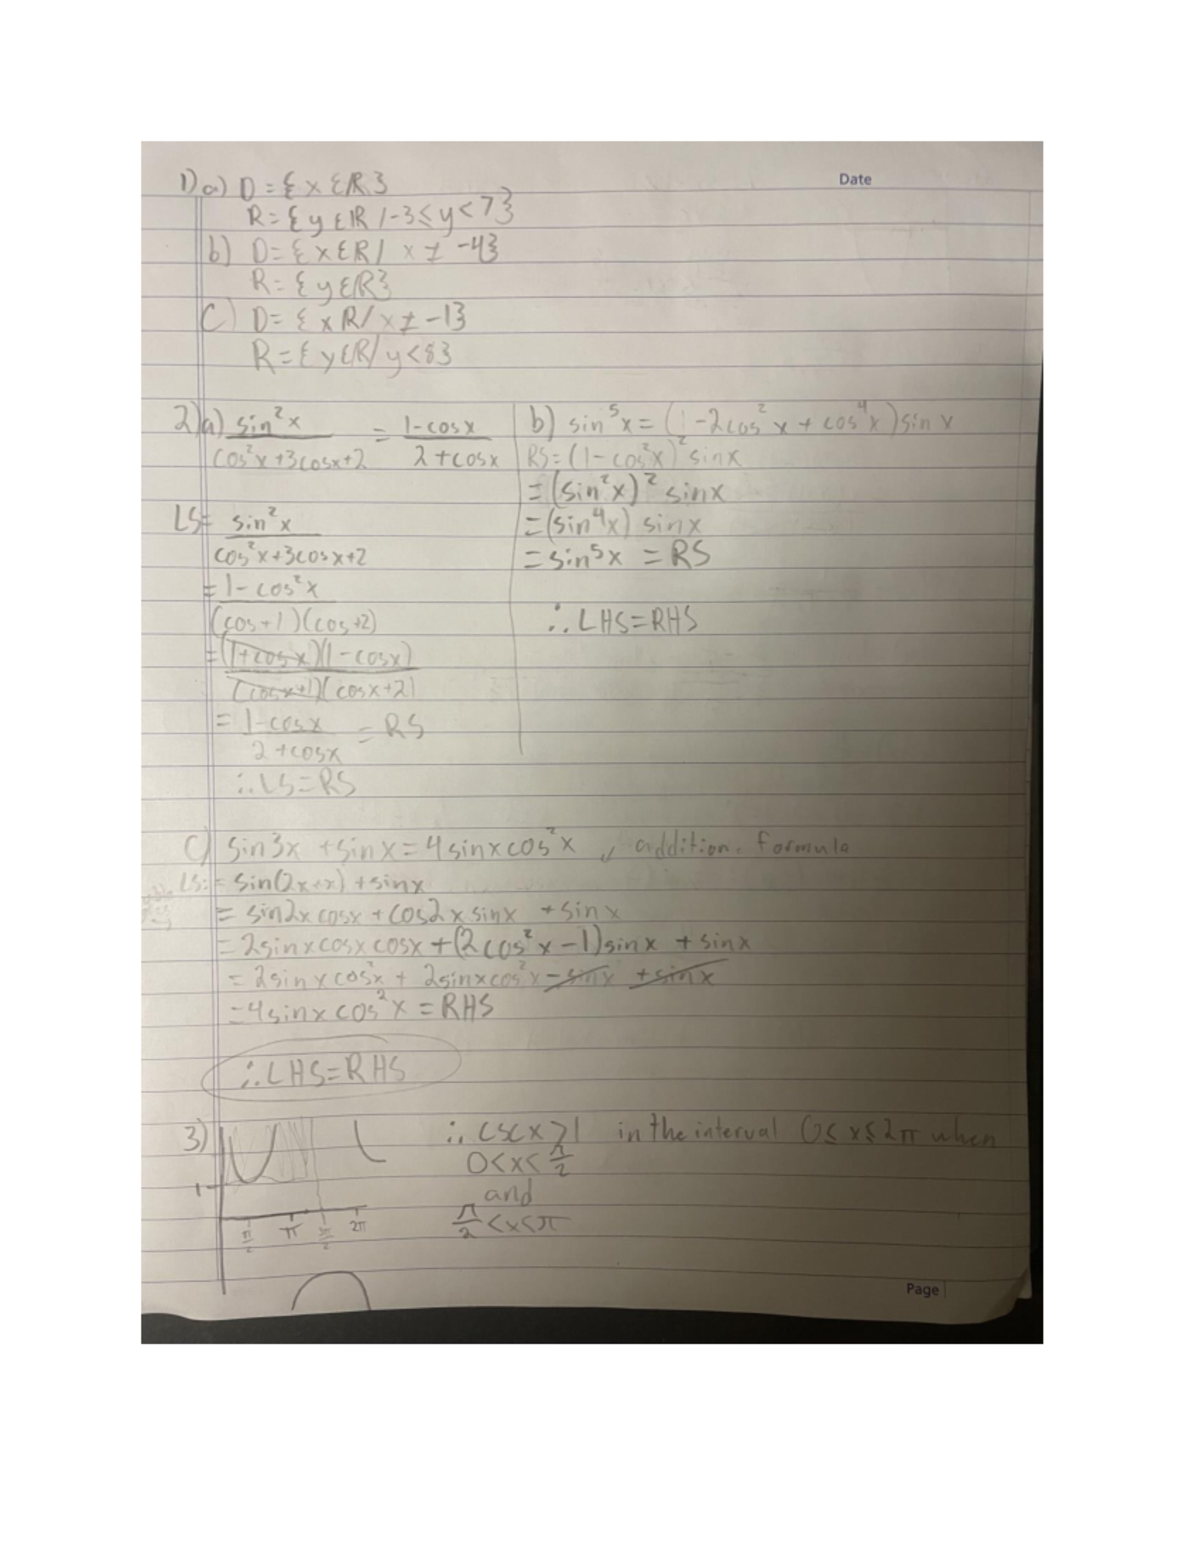 Date
1) a) D = { x ε R }
R = { y ε R / -3 ≤ y < 7 }
b) D = { x ε R / x ≠ -4 }
R = { y ε R }
C) D = { x R / x ≠ -1 }
R = { y ε R / y < 8 }
2) a) sin²x / cos²x+3cosx+2 = 1-cosx / 2+cosx
LS= sin²x / cos²x+3cosx+2
= 1-cos²x / (cos+1)(cos+2)
= (1+cosx)(1-cosx) / (cosx+1)(cosx+2)
= 1-cosx / 2+cosx = RS
∴ LS=RS
b) sin⁵x = (1-2cos²x + cos⁴x) sin x
RS= (1-cos²x)² sinx
= (sin²x)² sinx
= (sin⁴x) sinx
= sin⁵x = RS
∴ LHS=RHS
C) sin3x + sinx = 4sinxcos²x , addition formula
LS: = sin(2x+x) + sinx
= sin2x cosx + cos2x sinx + sinx
= 2sinxcosxcosx + (2cos²x-1)sinx + sinx
= 2sinxcos²x + 2sinxcos²x - sinx + sinx
= 4sinxcos²x = RHS
∴ LHS=RHS
3)
∴ csc x >1 in the interval 0≤x≤2π when
0<x<π/2
and
π/2<x<π
1
π/2 π 3π/2 2π
Page